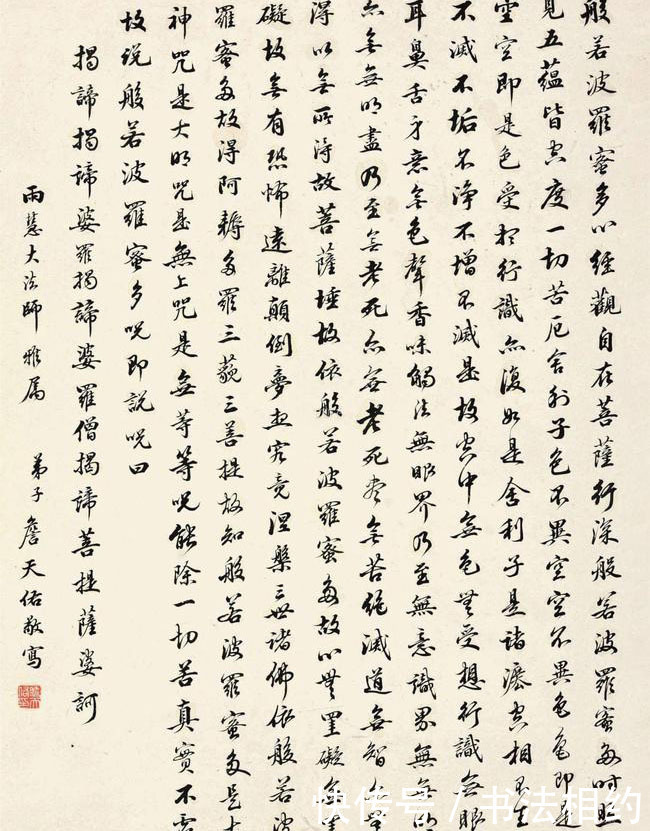 般若波羅蜜多心經觀自在菩薩行深般若波羅蜜多時照
見五蘊皆空度一切苦厄舍利子色不異空空不異色色即是
空空即是色受想行識亦復如是舍利子是諸灋空相不生
不滅不垢不淨不增不減是故空中無色無受想行識無眼
耳鼻舌身意無色聲香味觸法無眼界乃至無意識界無無明
亦無無明盡乃至無老死亦無老死盡無苦集滅道無智亦無
得以無所得故菩薩埵故依般若波羅蜜多故心無罣礙無罣
礙故無有恐怖遠離顛倒夢想究竟涅槃三世諸佛依般若波
羅蜜多故得阿耨多羅三藐三菩提故知般若波羅蜜多是大
神咒是大明咒是無上咒是無等等呪能除一切苦真實不虛
故說般若波羅蜜多呪即說呪曰
揭諦揭諦婆羅揭諦婆羅僧揭諦菩提薩婆訶
雨慧大法師雅屬 弟子詹天佑敬寫
快传号 / 书法相约